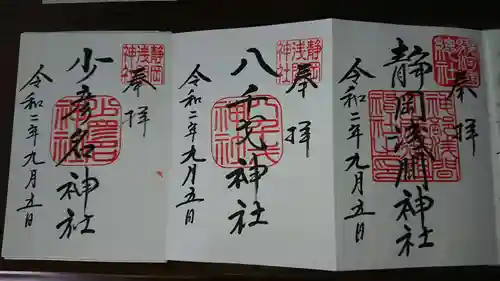 奉拝
静岡浅間神社
令和二年九月五日
奉拝
静岡浅間神社
八千戈神社
八千戈神社
令和二年九月五日
奉拝
静岡浅間神社
少彦名神社
令和二年九月五日